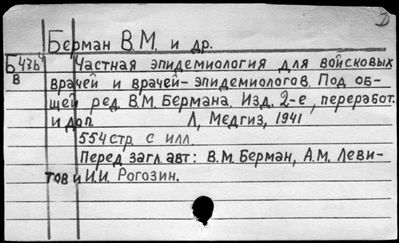 Д
Берман В.М. и др.
Б476
В
Частная эпидемиология для войсковых
врачей и врачей-эпидемиологов. Под об-
щей ред. В.М. Бермана. Изд. 2-е, переработ.
и доп. Л, Медгиз, 1941
554 стр. с илл.
Перед загл. авт: В.М. Берман, А.М. Леви-
тов и И.И. Рогозин.